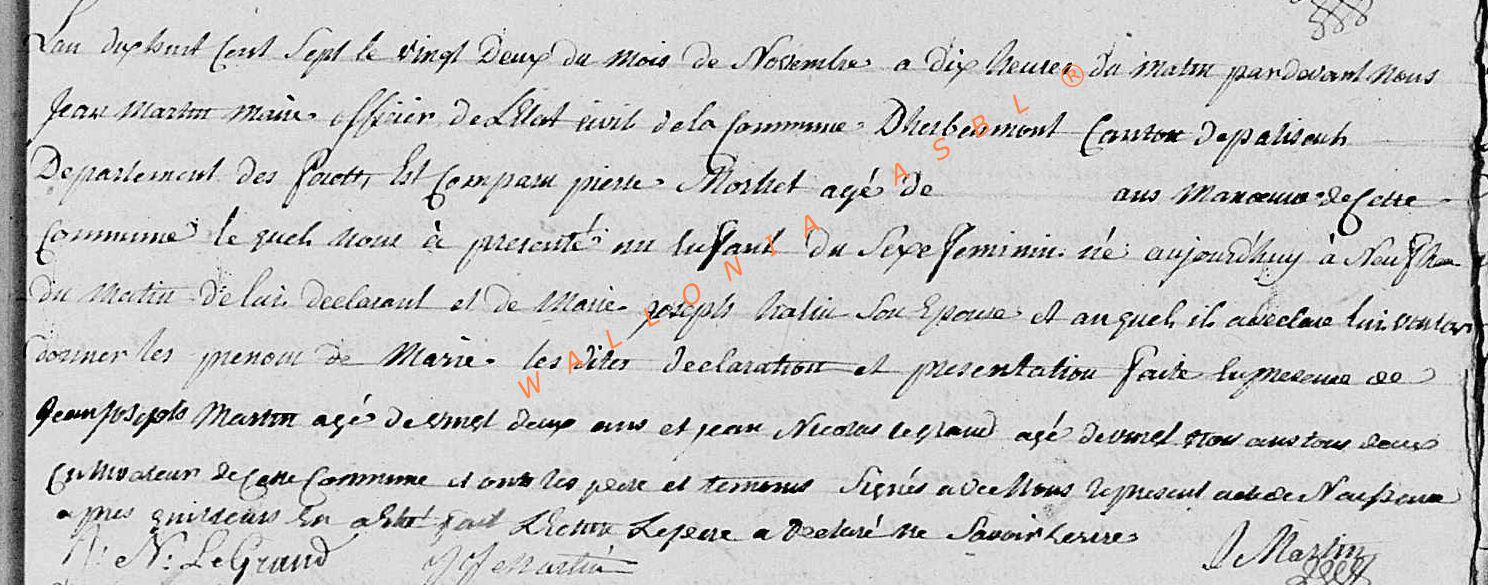 Lan dix huit Cent Sept le vingt Deux du Mois de Novembre a dix heures du matin pardevant Nous
Jean Martin Maire officier de L'Etat civil de la Commune D'herbeumont Canton de paliseuh
Departement des forett Est Comparu pierre Morhet agé de ans Manoeuvre de Cette
Commune le quel nous a presenté un Enfant du Sexe feminin né aujourd'huy à Neuf heu
du Matin de lui declarant et de Marie joseph Son Epouse et auquel il a declaré lui vouloir
donner les prenom de Marie les dites declaration et presentation faite En presence de
Jean joseph Martin agé de vingt deux ans et jean Nicolas legrand agé de vingt trois ans tous deux
Cultivateur de Cette Commune et ont les pere et temoins Signés avec Nous le present acte de Naissance
apres qu'il leurs En a Eté fait Lecture Le pere a Declaré ne Savoir Ecrire
N: LeGrand JJ Martin J Martin
WALLONIA ASBL ®